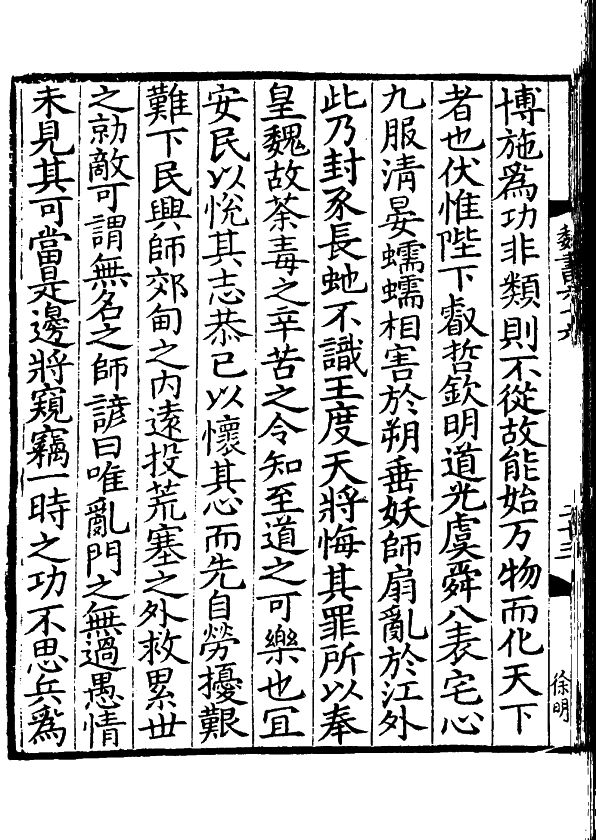 魏書六十六
二十三
徐明
博施爲功非類則不從故能始万物而化天下
者也伏惟陛下叡哲欽明道光虞舜八表宅心
九服清晏蠕蠕相害於朔垂妖師扇亂於江外
此乃封豕長虵不識王度天將悔其罪所以奉
皇魏故荼毒之辛苦之令知至道之可樂也冝
安民以恱其志恭己以懷其心而先自勞擾艱
難下民興師郊甸之内遠投荒塞之外救累丗
之勍敵可謂無名之師諺曰唯亂門之無過愚情
未見其可當是邊將窺竊一時之功不思兵爲